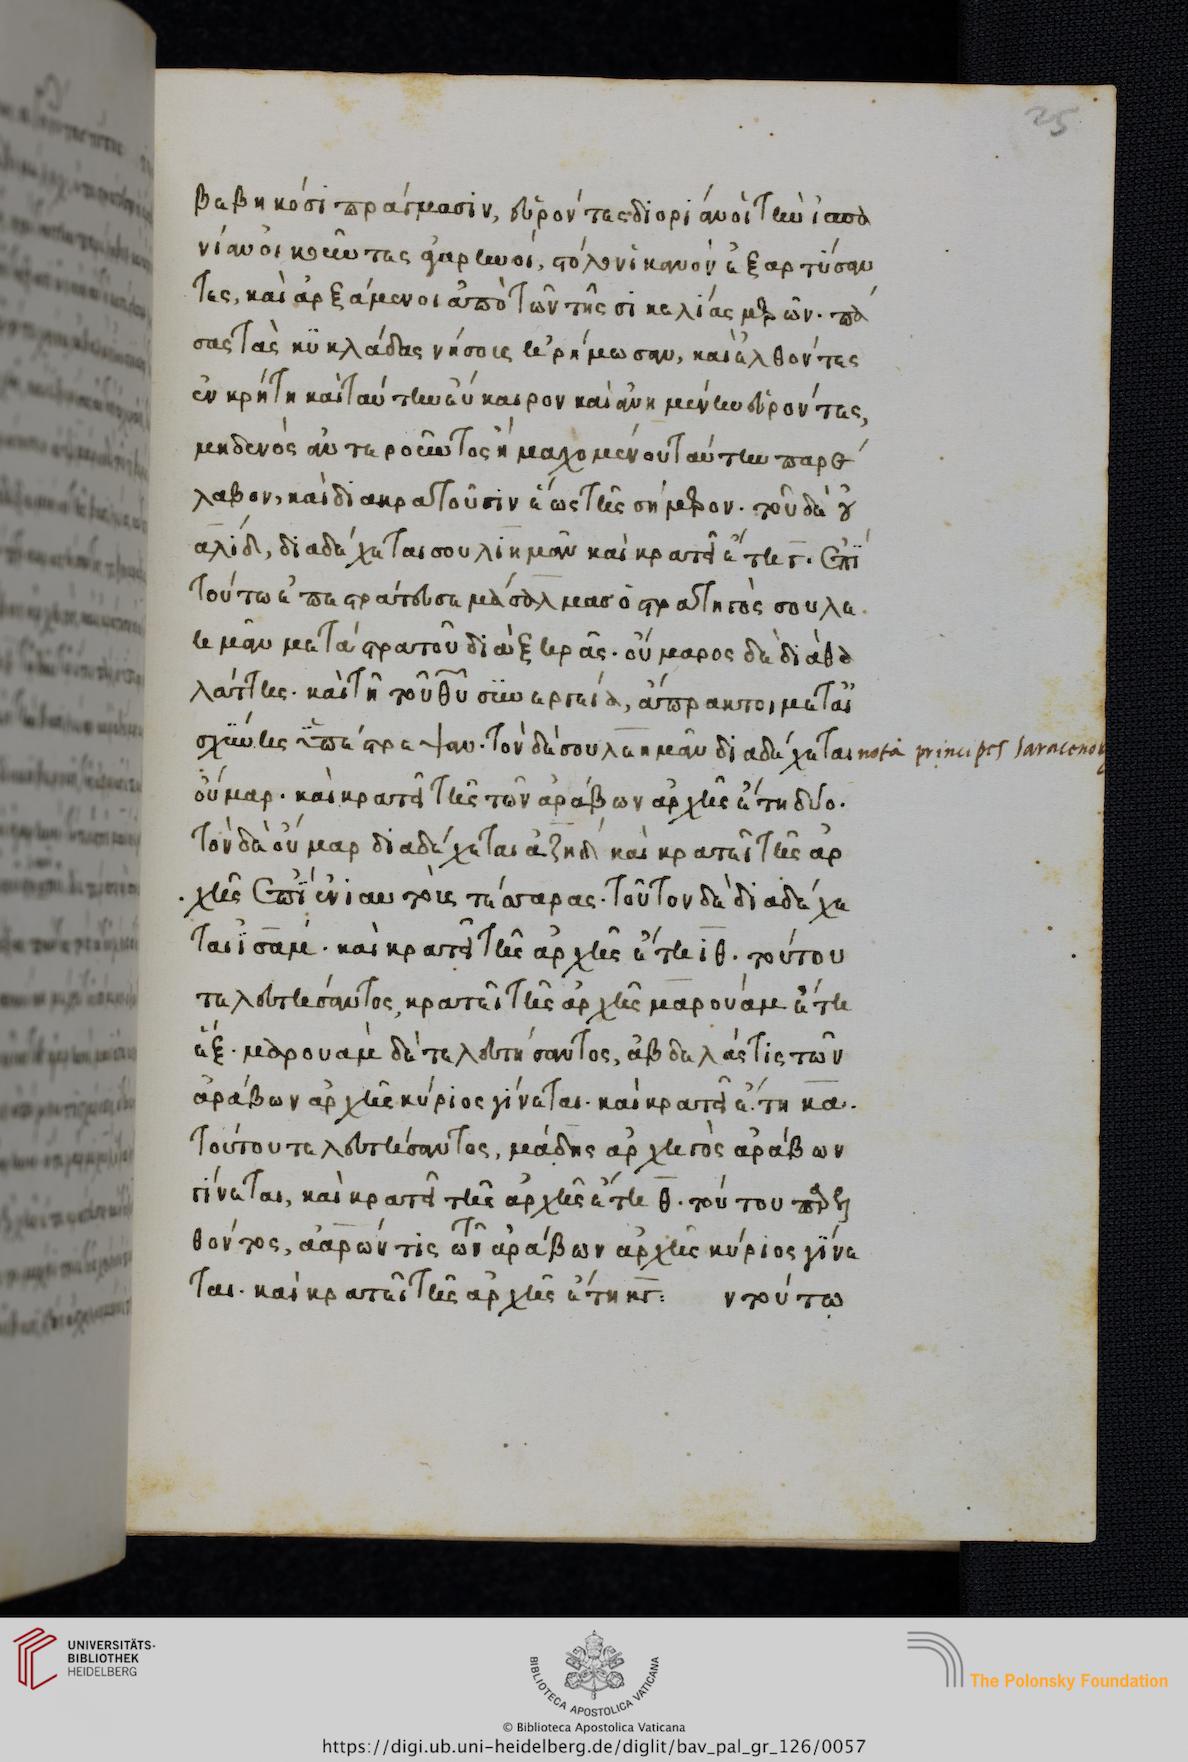 25
βεβηκόσι πράγμασιν, εὑρόντες δι οριάνοὶ τὴν ἱσπα
νίαν οἰκοῦντες ἀγαρηνοί, στόλον ἱκανὸν ἐξαρτύσαν
τες, καὶ ἀρξάμενοι ἀπὸ τῶν τῆς σικελίας μερῶν. πά
σας τὰς κυκλάδας νήσους ἠρήμωσαν, καὶ ἐλθόντες
ἐν κρήτη καὶ ταύτην εὔκαιρον καὶ ἀνημένην εὑρόντες,
μηδενὸς ἀνταιροῦντος ἢ μαχομένου ταύτην παρέ
λαβον, καὶ διακρατοῦσιν ἕως τῆς σήμερον. τοῦ δὲ οὐ
αλὶδ, διαδέχεται σουλϊημὰν καὶ κρατεῖ ἔτη γ. ἐπὶ
τούτω ἐπεστράτευσε μάσαλμας ὁ στρατηγὸς σουλε
ημὰν μετὰ στρατοῦ διὰ ξηρᾶς. οὔμαρος δὲ διὰ θα
λάττης. καὶ τῆ τοῦ θῦ συνεργεία, ἄπρακτοι μεταῒ
σχύνης ὑπέστρεψαν. τὸν δὲ σουλεημὰν διαδέχεται
nota principes saracenor
οὔμαρ. καὶ κρατεῖ τῆς τῶν ἀράβων ἀρχῆς ἔτη δύο.
τὸν δὲ οὔμαρ διαδέχεται ἀζηδ καὶ κρατεῖ τῆς ἀρ
χῆς ἐπὶ ἐνιαυτοὺς τέσσαρας. τοῦτον δὲ διαδέχε
ται ἰσαμέ. καὶ κρατεῖ τῆς ἀρχῆς ἔτη ιθ. τούτου
τελευτήσαντος, κρατεῖ τῆς ἀρχῆς μαρουάμ ἔτη
ἕξ. μαρουάμ δὲ τελευτήσαντος, ἀβδελάς τις τῶν
ἀράβων ἀρχῆς κύριος γίνεται. καὶ κρατεῖ ἔτη κα.
τούτου τελευτήσαντος, μάδης ἀρχηγὸς ἀράβων
γίνεται, καὶ κρατεῖ τῆς ἀρχῆς ἔτη θ. τούτου παρελ
θόντος, ἀαρών τις τῶν ἀράβων ἀρχῆς κύριος γίνε
ται. καὶ κρατεῖ τῆς ἀρχῆς ἔτη κγ: ν τούτω
UNIVERSITÄTS-
BIBLIOTHEK
HEIDELBERG
BIBLIOTECA APOSTOLICA VATICANA
The Polonsky Foundation
© Biblioteca Apostolica Vaticana
https://digi.ub.uni-heidelberg.de/diglit/bav_pal_gr_126/0057